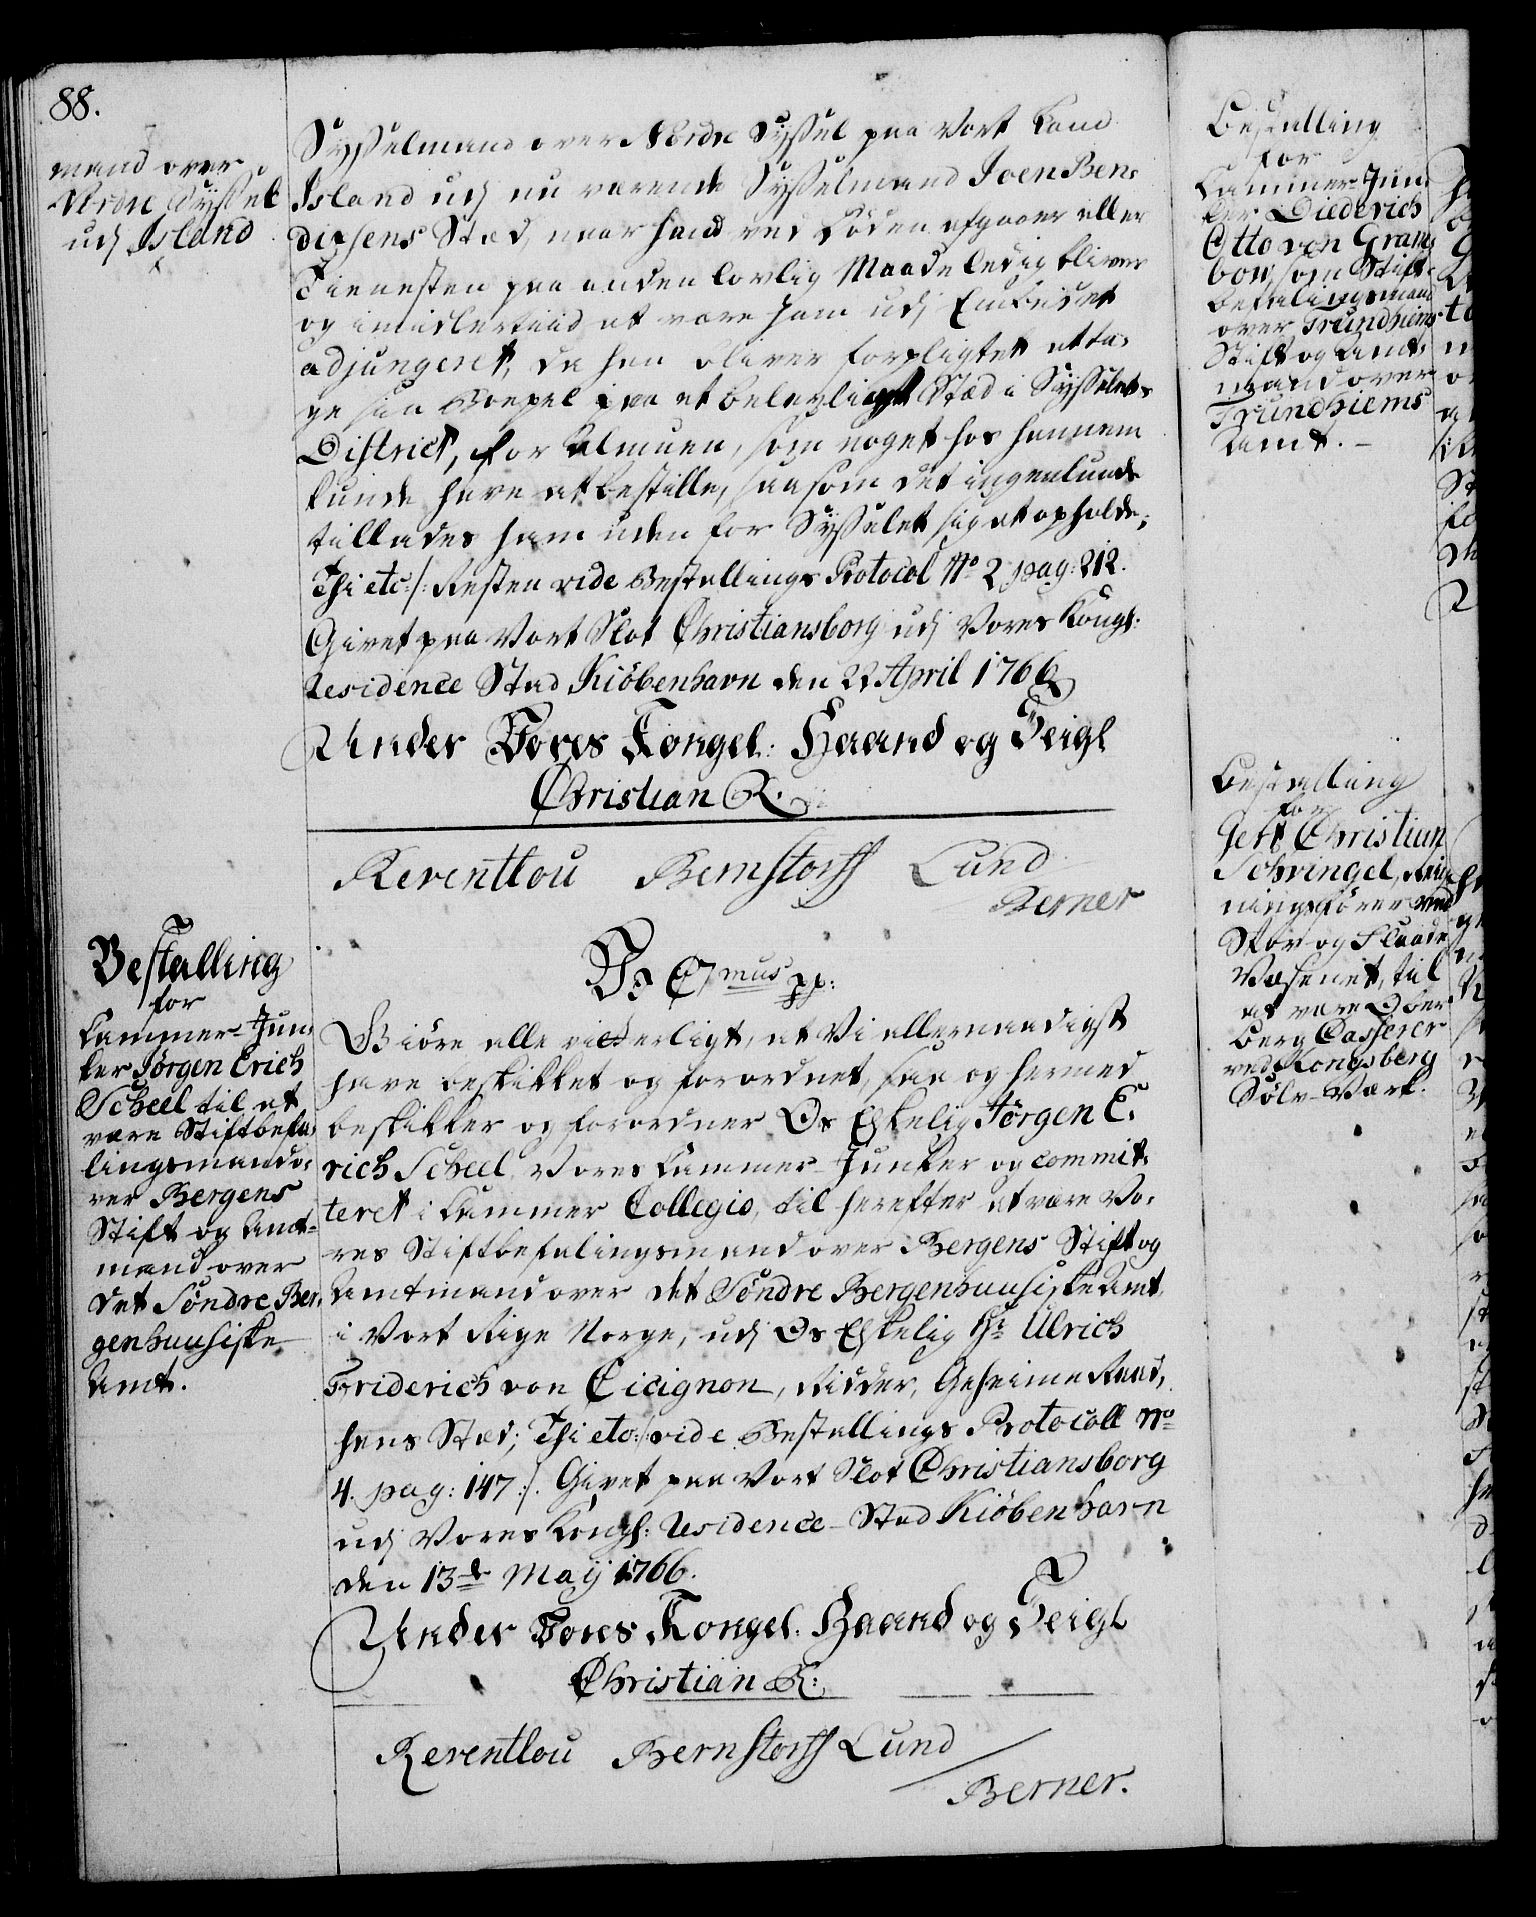 88.
mand over
Nordre Syssel
udj Island
Sysselmand over Nordre Syssel paa Vort Land
Island udj nu værende Sysselmand Joen Ben-
dixsens Stæd, naar hand ved Døden afgaaer eller
Tienesten paa anden lovlig Maade ledig bliver
og imidlertiid at være ham udj Embedet
adjungeret, da han bliver forpligtet at ta-
ge sin Boepæl paa et beleyligt Stæd i Sysselets
District, for Almuen, som noget hos hannem
kunde have at bestille, saasom det ingenlunde
tillades ham uden for Sysselet sig at opholde;
Thi etc:/: Resten vide Bestallings Protocol No 2 pag: 212.
Givet paa Vort Slot Christiansborg udj Vores Kongl:
Residence Stad Kiöbenhavn den 22 April 1766
Under Vores Kongel: Haand og Seigl
Christian R.
Reventlou Bernstorff Lund
Berner
Bestalling
for
Cammer-Jun-
ker Jörgen Erich
Scheel til at
være Stiftbefa-
lingsmand o-
ver Bergens
Stift og Amt-
mand over
det Söndre Ber-
genhuusiske
Amt.
Vo C7mus pp:
Giöre alle vitterligt, at Vi allernaadigst
have beskikket og forordnet, saa og hermed
beskikker og forordner Os Elskelig Jörgen E-
rich Scheel Vores Cammer-Junker og commit-
teret i Cammer Collegio, til herefter at være Vo-
res Stiftbefalingsmand over Bergens Stift og
Amtmand over det Söndre Bergenhuusiske Amt,
i Vort Rige Norge, udj Os Elskelig Hr Ulrich
Friderich von Cicignon, Ridder, Geheime Raad,
hans Stæd; Thi etc:/: vide Bestallings Protocoll No
4. pag: 147:/. Givet paa Vort Slot Christiansborg
udj Vores Kongl: Residence-Stad Kiöbenhavn
den 13de Maÿ 1766.
Under Vores Kongel: Haand og Seigl
Christian R:
Reventlou Bernstorff Lund
Berner.
Bestalling
for
Cammer-Jun-
ker Diederich
Otto von Gram-
bow, som Stift-
befalingsmand
over Trundhiems
Stift og Amt-
mand over
Trundhiems
Amt.
Bestalling
for
Gert Christian
Schvingel, Reg-
ningsförer ved
Skov og Flaade
Væsenet, til
at være Ober
Berg Casserer
ved Kongsberg
Sölv-Værk.